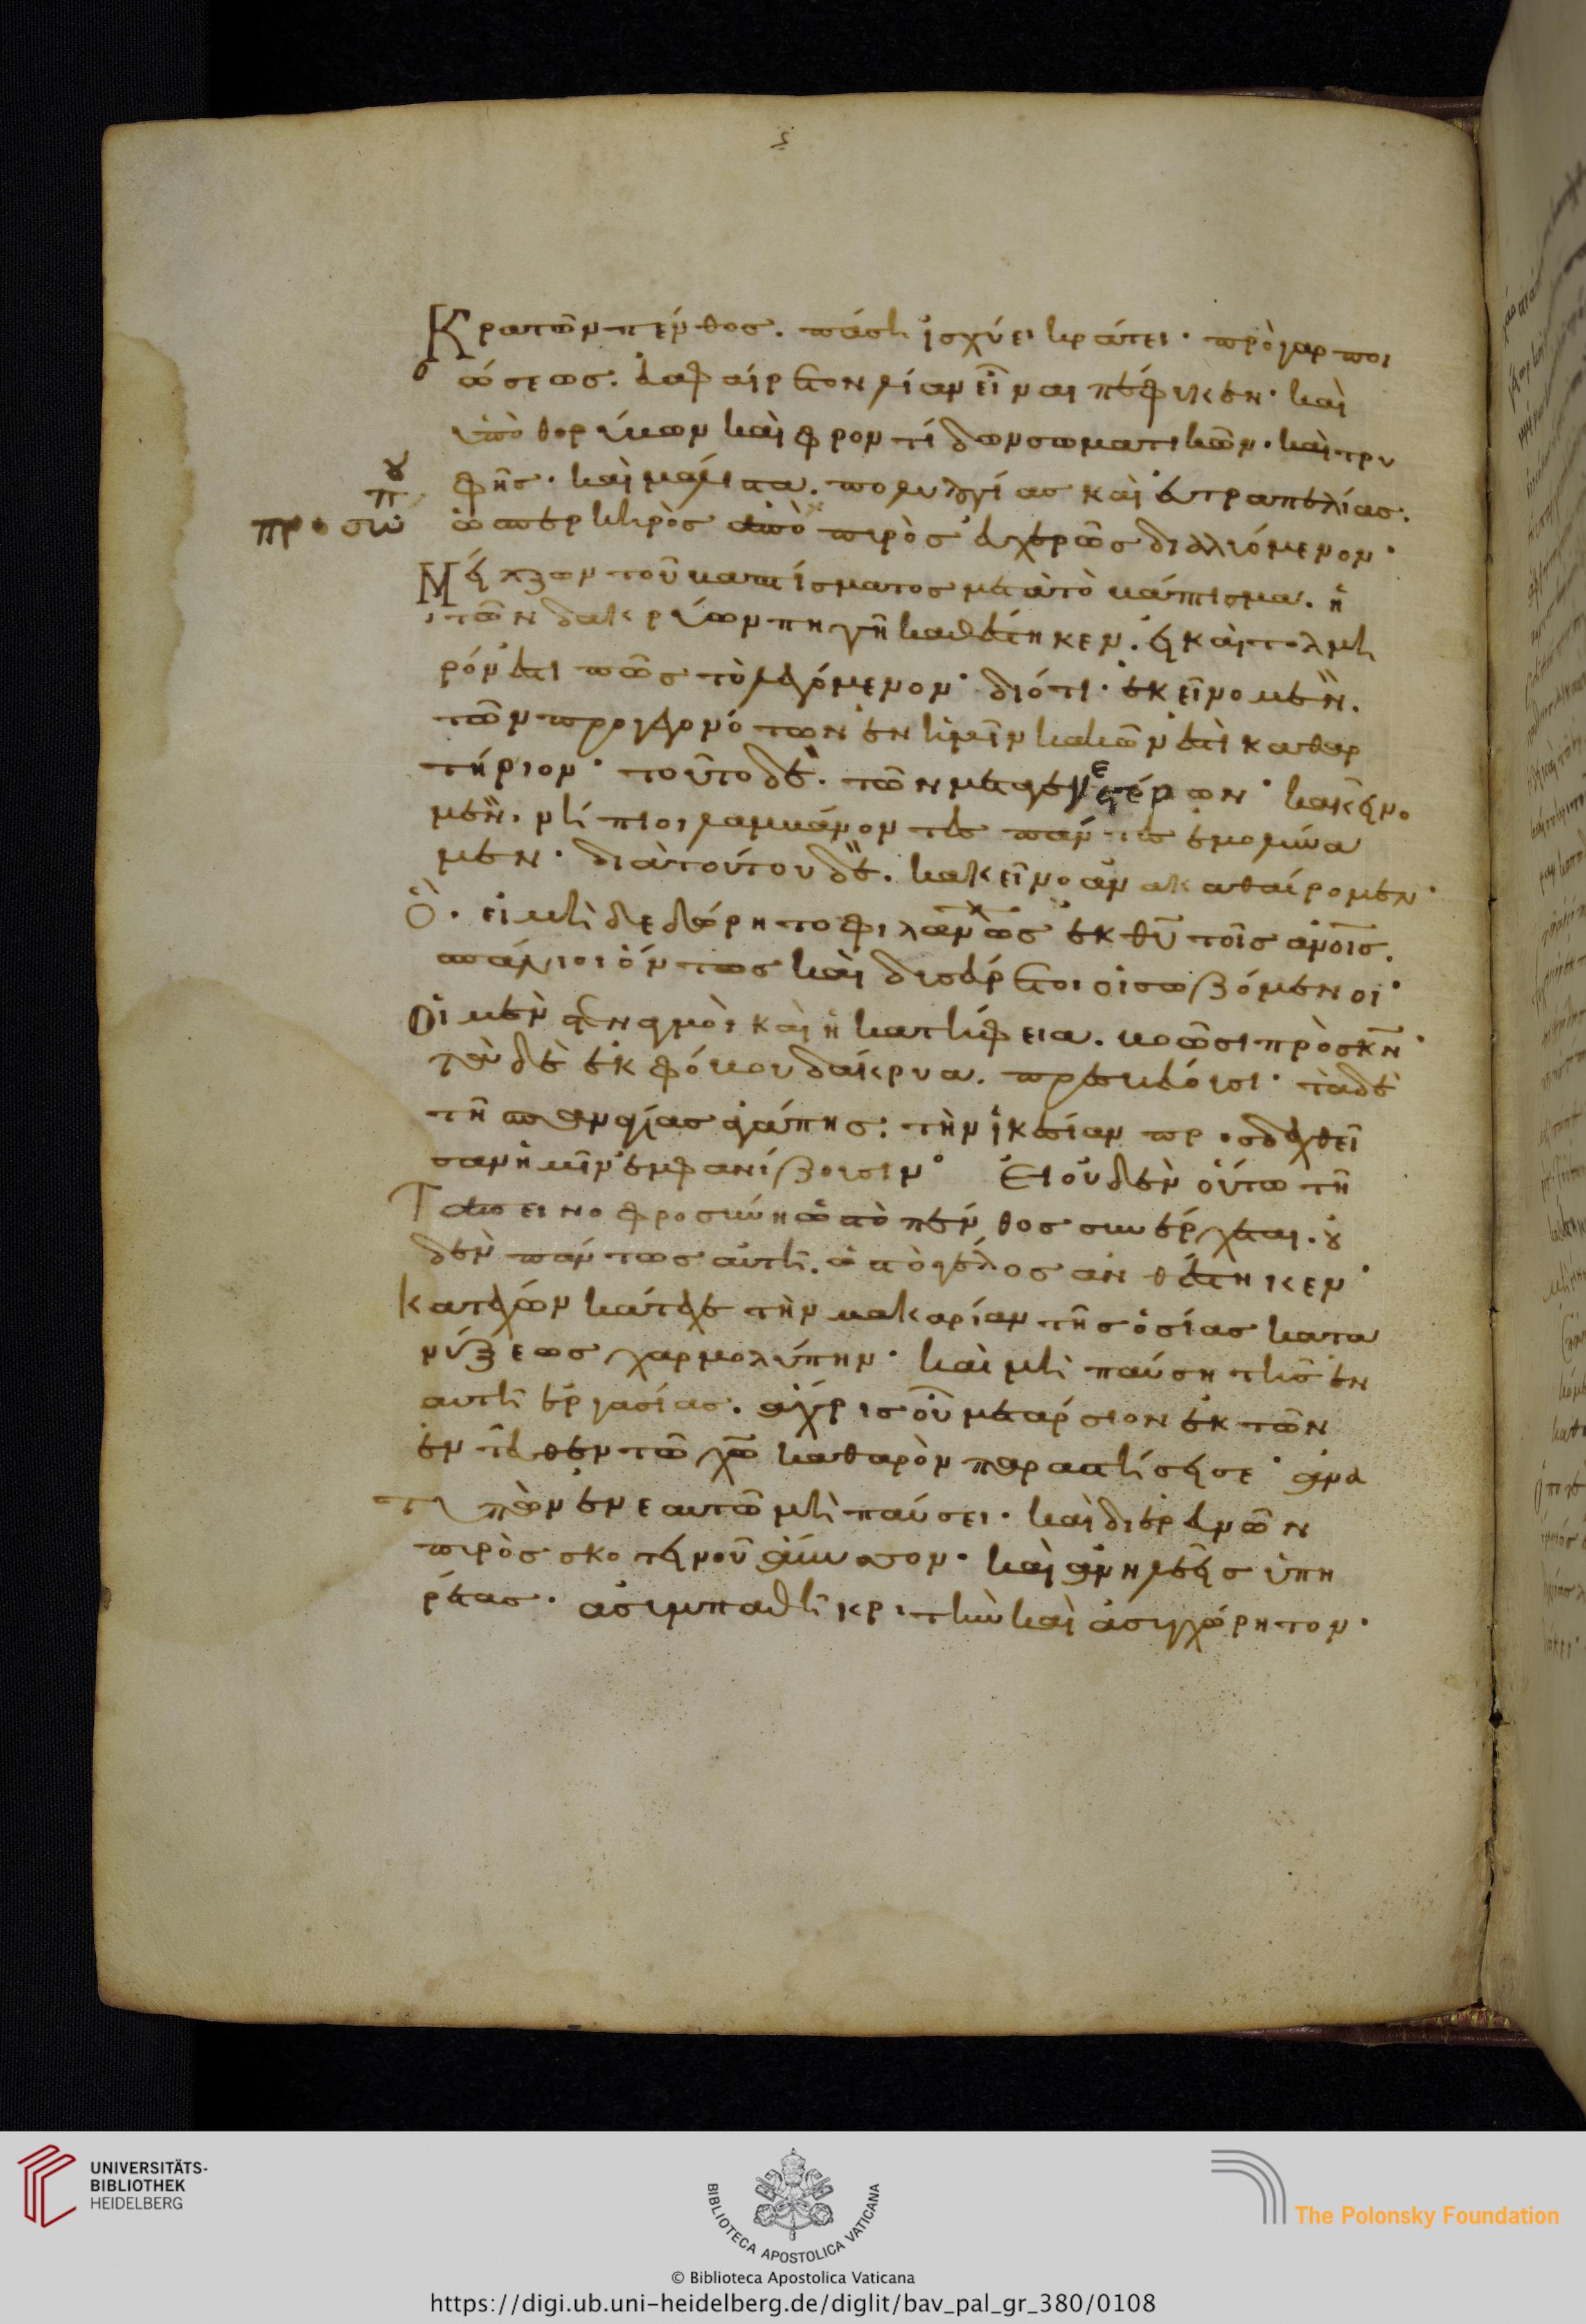 ς
Κρατῶν πένθος. πάσῃ ἰσχύει κράτει· πρὸ γὰρ ποι
ώσεως. εὐαφαίρετον λίαν εἶναι πέφυκεν· καὶ
ὑπὸ θορύβων καὶ φροντίδων σωματικῶν· καὶ τρυ
φῆς· καὶ μάλιστα. πολυλογίας καὶ εὐτραπελίας.
ὥσπερ κηρὸς ἀπὸ πυρὸς εὐχερῶς διαλυόμενον·
Μείζων τοῦ βαπτίσματος μετὰ τὸ βάπτισμα. ἡ
τῶν δακρύων πηγὴ καθέστηκεν. εἰ καὶ τολμη
ρόν ἐστι πῶς τὸ λεγόμενον· διότι· ἐκεῖνο μὲν.
τῶν προγεγονότων ἐν ἡμῖν κακῶν ἐστὶ καθαρ
τήριον· τοῦτο δὲ. τῶν μεταγενεστέρων· κἀκεῖνο
μὲν. νήπιοι λαμβάνοντες πάντες ἐμολύνα
μεν· διὰ τούτου δὲ. κἀκεῖνο ἀνακαθαίρομεν·
ὃ. εἰ μὴ δεδώρητο φιλανως ἐκ θυ τοῖς ανοις.
σπάνιοι ὄντως καὶ δυσεύρετοι οἱ σωζόμενοι·
Οἱ στεναγμοὶ καὶ ἡ κατήφεια. βοῶσι πρὸς κν·
τὰ δὲ ἐκ φόβου δάκρυα. πρεσβεύουσι· τὰ δὲ
τῆς παναγίας ἀγάπης. τὴν ἱκεσίαν προσδεχθεῖ
σαν ἡμῖν ἐμφανίζουσιν· Εἰ οὐδὲν οὕτω τῇ
Ταπεινοφροσύνῃ ὡς τὸ πένθος συνέρχεται. ου
δὲν πάντως αὐτῇ. ὡς τὸ γέλος ἀνθέστηκεν·
Κατέχων κάτεχε τὴν μακαρίαν τῆς ὁσίας κατα
νύξεως χαρμολύπην· καὶ μὴ παύσῃ τῆς ἐν
αὐτῇ ἐργασίας. ἄχρις οὗ μετάρσιον ἐκ τῶν
ἐντεῦθεν τῶ χω καθαρὸν παραστήσει σε· ἀνα
τυπῶν ἐν ἑαυτῶ μὴ παύσει·
πυρὸς σκοτεινοῦ ἄβυσσον· καὶ ἀνηλεεῖς ὑπη
ρέτας· ἀσυμπαθῆ κριτὴν καὶ ἀσυγχώρητον·
UNIVERSITÄTS-
BIBLIOTHEK
HEIDELBERG
BIBLIOTECA APOSTOLICA VATICANA
The Polonsky Foundation
© Biblioteca Apostolica Vaticana
https://digi.ub.uni-heidelberg.de/diglit/bav_pal_gr_380/0108